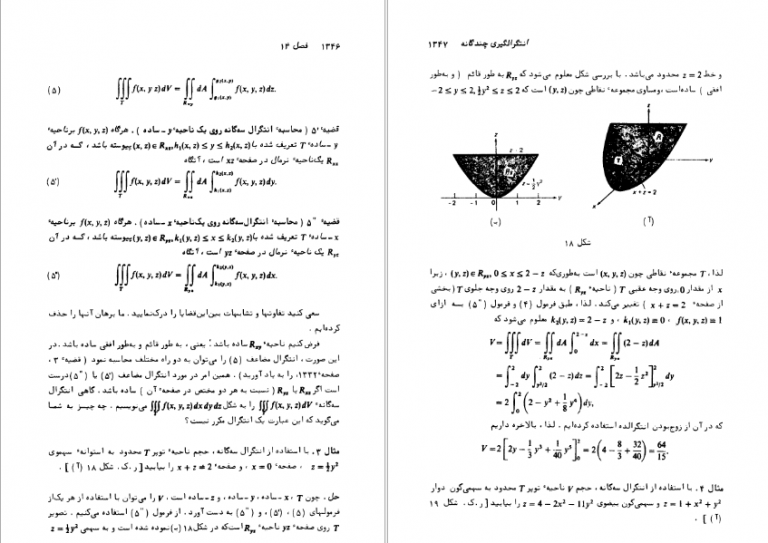 ۱۳۴۶ فصل ۱۴
∭_T f(x, y, z) dV = ∬_{R_xy} dA ∫_{g₁(x,y)}^{g₂(x,y)} f(x, y, z) dz. (۵)
قضیه ۵′ ( محاسبه انتگرال سه‌گانه روی یک ناحیه y - ساده ) . هرگاه f(x, y, z) برناحیه
y - ساده T تعریف شده با (x, z) ∈ R_xz, h₁(x, z) ≤ y ≤ h₂(x, z) پیوسته باشد ، که در آن
R_xz یک‌ناحیه نرمال در صفحه xz است ، آنگاه
∭_T f(x, y, z) dV = ∬_{R_xz} dA ∫_{h₁(x,z)}^{h₂(x,z)} f(x, y, z) dy. (۵′)
قضیه ۵″ ( محاسبه انتگرال سه‌گانه روی یک‌ناحیه x - ساده ) . هرگاه f(x, y, z) برناحیه
x - ساده T تعریف شده با (y, z) ∈ R_yz, k₁(y, z) ≤ x ≤ k₂(y, z) پیوسته باشد ، که در آن
R_yz یک ناحیه نرمال در صفحه yz است ، آنگاه
∭_T f(x, y, z) dV = ∬_{R_yz} dA ∫_{k₁(y,z)}^{k₂(y,z)} f(x, y, z) dx. (۵″)
سعی کنید تفاوتها و تشابهات بین‌این‌قضایا را درک‌نمایید . ما برهان آنها را حذف
کرده‌ایم .
فرض‌کنیم ناحیه R_xy ساده باشد ؛ یعنی ، به طور قائم و به‌طور افقی ساده باشد . در
این صورت ، انتگرال مضاعف (۵) را می‌توان به دو راه مختلف محاسبه نمود ( قضیه ۳ ،
صفحه ۱۳۳۲، را به یاد آورید ) . همین امر در مورد انتگرال مضاعف (۵′) یا (۵″) درست
است اگر R_xz یا R_yz ( نسبت به هر دو مختص در صفحه آن ) ساده باشد . گاهی انتگرال
سه‌گانه ∭_T f(x, y, z) dV را به شکل ∭_T f(x, y, z) dx dy dz می‌نویسیم . چه چیز به شما
می‌گوید که این عبارت یک انتگرال مکرر نیست؟
مثال ۳ . با استفاده از انتگرال سه‌گانه ، حجم ناحیه توپر T محدود به استوانه سهموی
z = ½y² ، صفحه x = 0 ، و صفحه x + z = 2 را بیابید [ ر.ک. شکل ۱۸ (آ) ] .
حل . چون T ، x - ساده ، y - ساده ، و z - ساده است ، V را می‌توان با استفاده از هر یک‌از
فرمولهای (۵) ، (۵′) ، و (۵″) به دست آورد . از فرمول (۵″) استفاده می‌کنیم . تصویر
T روی صفحه yz ناحیه R_yz است‌که در شکل ۱۸ (ب) نموده شده است و به سهمی z = ½y²
انتگرالگیری چندگانه ۱۳۴۷
و خط z = 2 محدود می‌باشد . با بررسی شکل معلوم می‌شود که R_yz به طور قائم ( و به‌طور
افقی ) ساده‌است ، ومساوی مجموعه نقاطی چون (y, z) است که −2 ≤ y ≤ 2, ½y² ≤ z ≤ 2
z
z = 2
R
z = ½y²
y
−2 −1 0 1 2
(ب)
z
R
T
y
x + z = 2
x
(آ)
شکل ۱۸
لذا ، T مجموعه نقاطی چون (x, y, z) است به‌طوری‌که (y, z) ∈ R_yz, 0 ≤ x ≤ 2 − z ، زیرا
x از مقدار 0 روی وجه عقبی T ( ناحیه R_yz ) به مقدار 2 − z روی وجه جلوی T ( بخشی
از صفحه x + z = 2 ) تغییر می‌کند . لذا ، طبق فرمول (۴) و فرمول (۵″) به ازای
f(x, y, z) ≡ 1 ، k₁(y, z) ≡ 0 ، و k₂(y, z) = 2 − z معلوم می‌شود که
V = ∭_T dV = ∬_{R_yz} dA ∫_0^{2−z} dx = ∬_{R_yz} (2 − z) dA
= ∫_{−2}^{2} dy ∫_{y²/2}^{2} (2 − z) dz = ∫_{−2}^{2} [2z − ½z²]_{y²/2}^{2} dy
= 2 ∫_0^2 (2 − y² + ⅛y⁴) dy,
که در آن از زوج‌بودن انتگرالده استفاده کرده‌ایم . لذا ، بالاخره داریم
V = 2 [2y − ⅓y³ + 1/40 y⁵]_0^2 = 2 (4 − 8/3 + 32/40) = 64/15.
مثال ۴ . با استفاده از انتگرال سه‌گانه ، حجم V ناحیه توپر T محدود به سهمی‌گون دوار
z = 1 + x² + y² و سهمی‌گون بیضوی z = 4 − 2x² − 11y² را بیابید [ ر.ک. شکل ۱۹
(آ) ] .